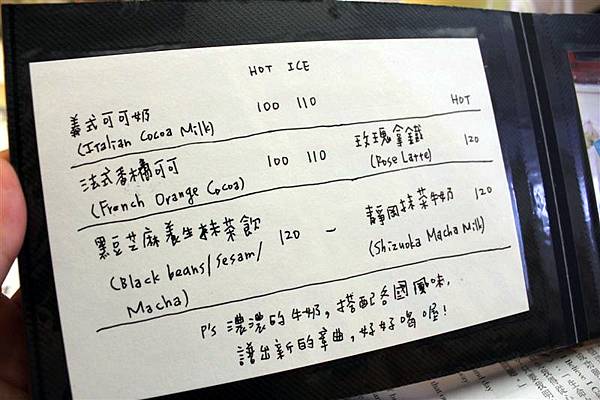 HOT ICE
義式可可奶 100 110
(Italian Cocoa Milk)
HOT
法式香橘可可 100 110
(French Orange Cocoa)
玫瑰拿鐵 120
(Rose Latte)
黑豆芝麻養生抹茶飲 120 -
(Black beans/Sesam/
Macha)
靜岡抹茶牛奶 120
(Shizuoka Macha Milk)
P's 濃濃的牛奶,搭配各國風味,
譜出新的章曲,好好喝喔!